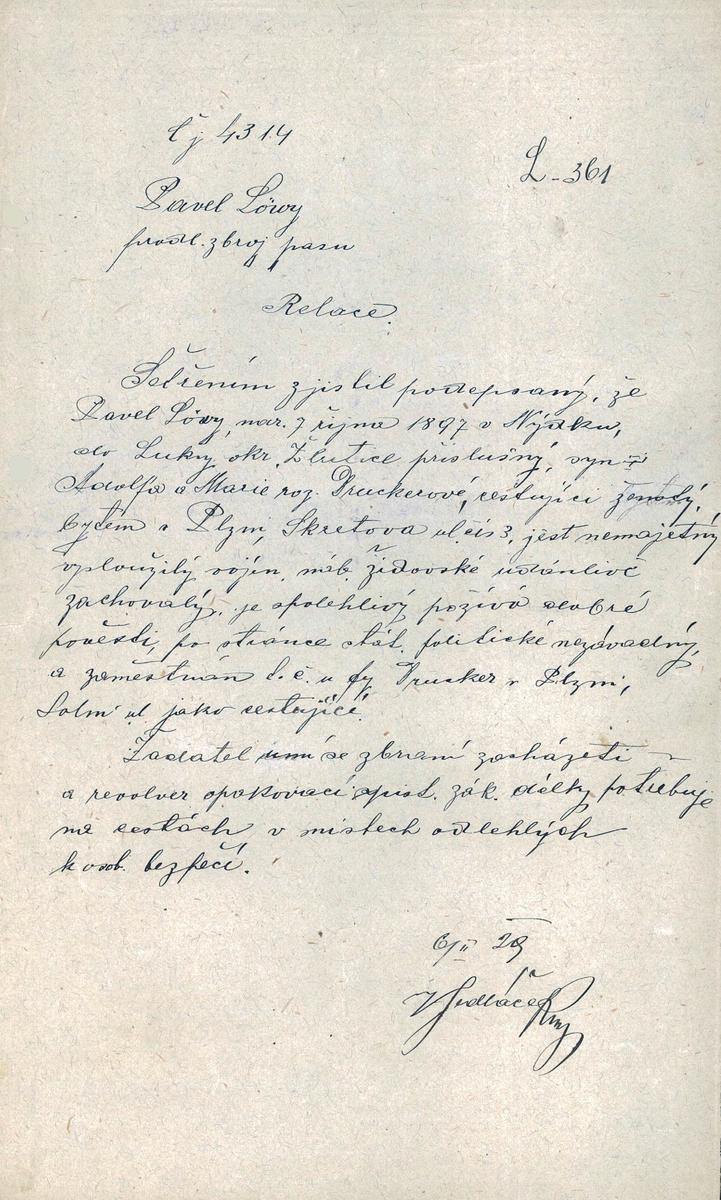 čj 4314
L-361
Pavel Löwy
prodl. zbroj pasu
Relace.
Šetřením zjistil podepsaný, že
Pavel Löwy, nar. 7 října 1897 v Nýrsku,
do Luky okr. Žlutice příslušný, syn
Adolfa a Marie roz. Druckerové, cestující ženatý,
bytem v Plzni, Škretova ul. čís 3, jest nemajetný
vysloužilý vojín, náb. židovské udánlivě
zachovalý, je spolehlivý požívá dobré
pověsti, po stránce stát. politické nezávadný,
a zaměstnán t. č. u fy Drucker v Plzni,
Solní ul jako cestující.
Žadatel umí se zbraní zacházeti
a revolver opakovací pist. zák. délky potřebuje
na cestách v místech odlehlých
k osob. bezpečí.
6/II 29
Sedláček